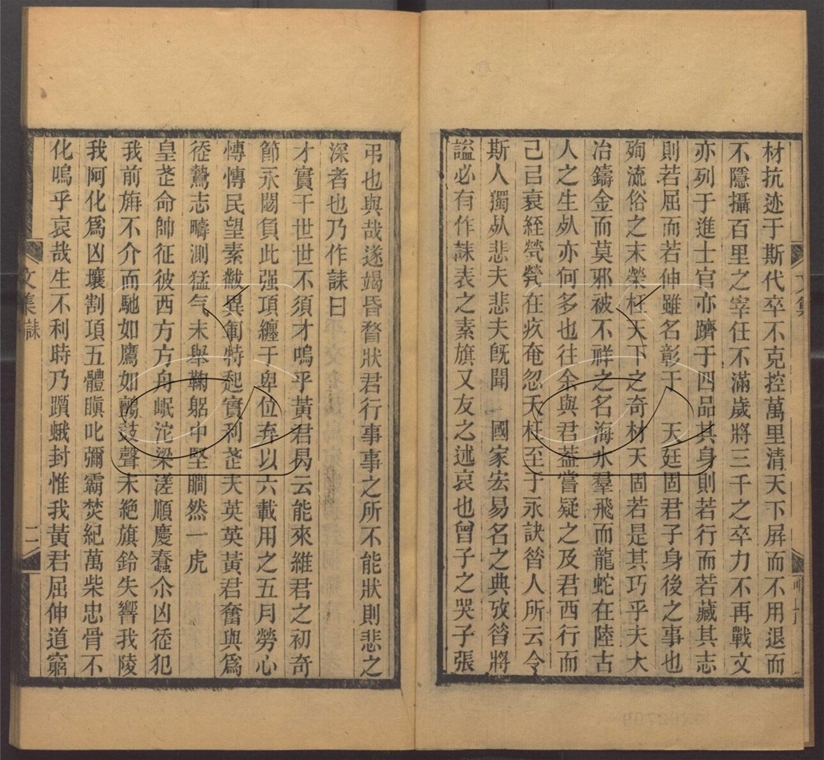 材抗迹于斯代卒不克控萬里清天下屏而不用退而
不隱攝百里之宰任不滿歲將三千之卒力不再戰文
亦列于進士官亦躋于四品其身則若行而若藏其志
則若屈而若伸雖名彰于 天廷固君子身後之事也
殉流俗之末榮枉天下之奇材天固若是其巧乎夫大
冶鑄金而莫邪被不祥之名海水羣飛而龍蛇在陸古
人之生死亦何多也往余與君蓋嘗疑之及君西行而
己㠯衰絰煢煢在疚奄忽夭枉至于永訣昝人所云今
斯人獨死悲夫悲夫旣聞 國家宏易名之典攷昝將
謚必有作誄表之素旗又友之述哀也曾子之哭子張
弔也與哉遂竭昏瞀狀君行事事之所不能狀則悲之
深者也乃作誄曰
才實干世世不須才嗚乎黃君曷云能來維君之初奇
節永閟負此强項纏于卑位弃以六載用之五月勞心
慱慱民望素㪚異軍特起實利茝天英英黃君奮與爲
徑鷙志疇測猛气未舉鞠躬中堅瞷然一虎
皇茝命帥征彼西方方舟岷沱梁溠順慶蠢尒凶徑犯
我前旃不介而馳如鷹如鸇鼓聲未絶旗鈴失響我陵
我阿化爲凶壤割項五體瞋叱彌霸焚紀萬柴忠骨不
化嗚乎哀哉生不利時乃躓蛾封惟我黃君屈伸道窮
文集
文集誄
二